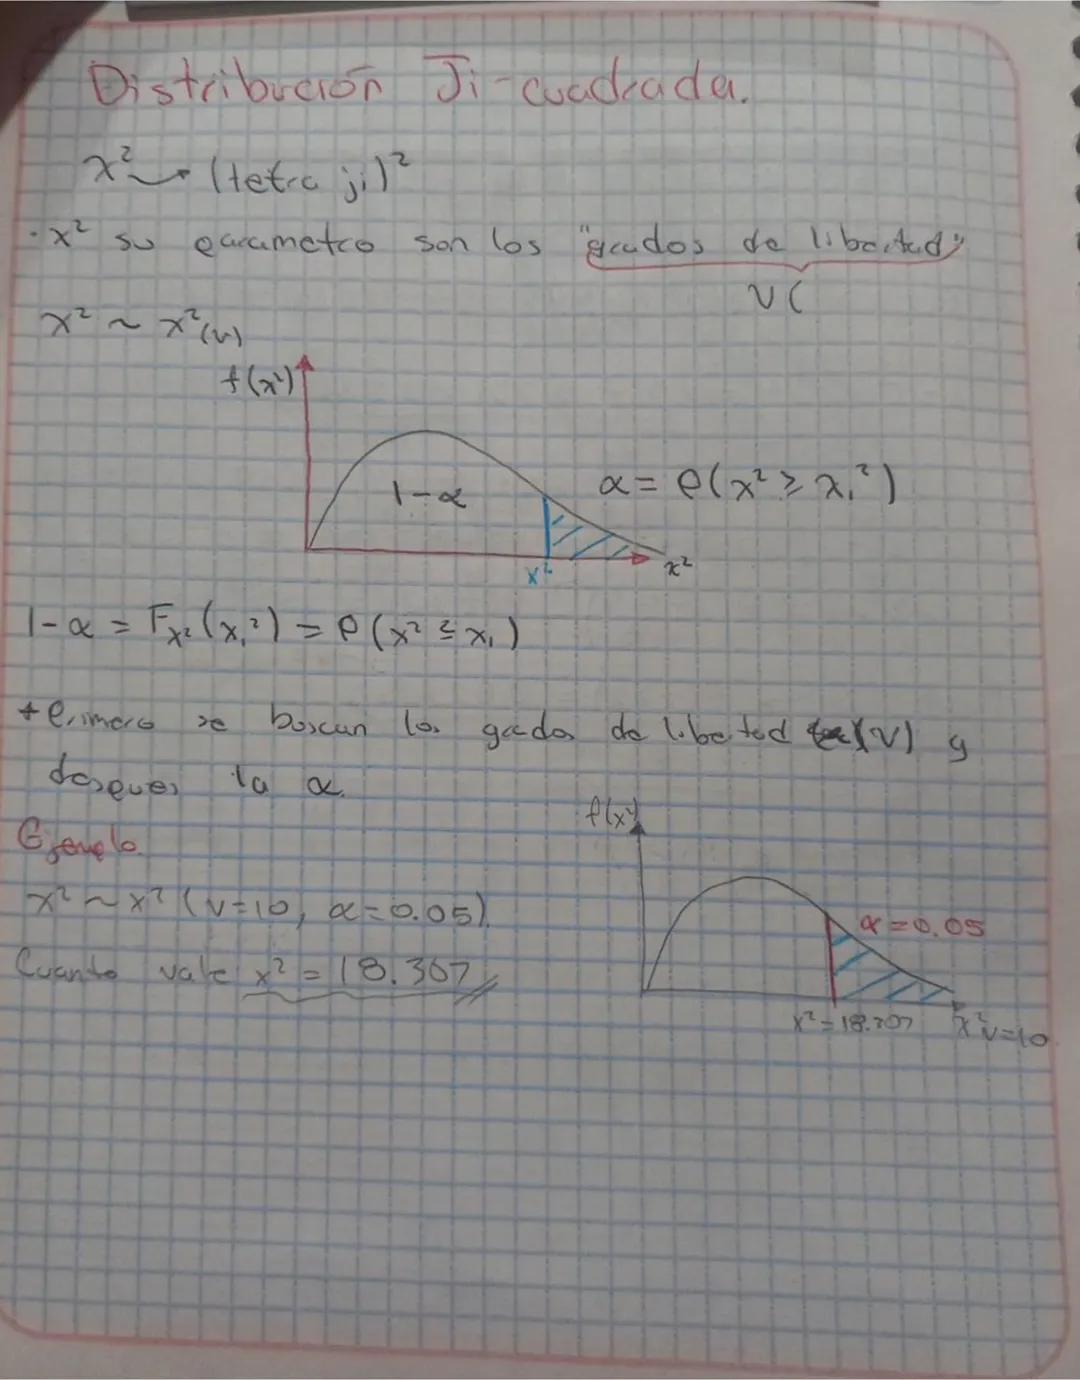 Distribución Ji-cuadrada.
x² → (letra ji)²
· x² su parametro son los "grados de libertad"
ν (
x² ~ x²(ν)
f(x²)
1-α
α = P(x² ≥ x₁²)
x²
x²
1-α = Fx²(x₁²) = P(x² ≤ x₁)
+ Primero se buscan los grados de libertad (ν) y
despues la α.
Ejemplo.
f(x²)
x² ~ x² (ν=10, α=0.05).
α=0.05
Cuanto vale x² = 18.307
x²=18.307
x² ν=10